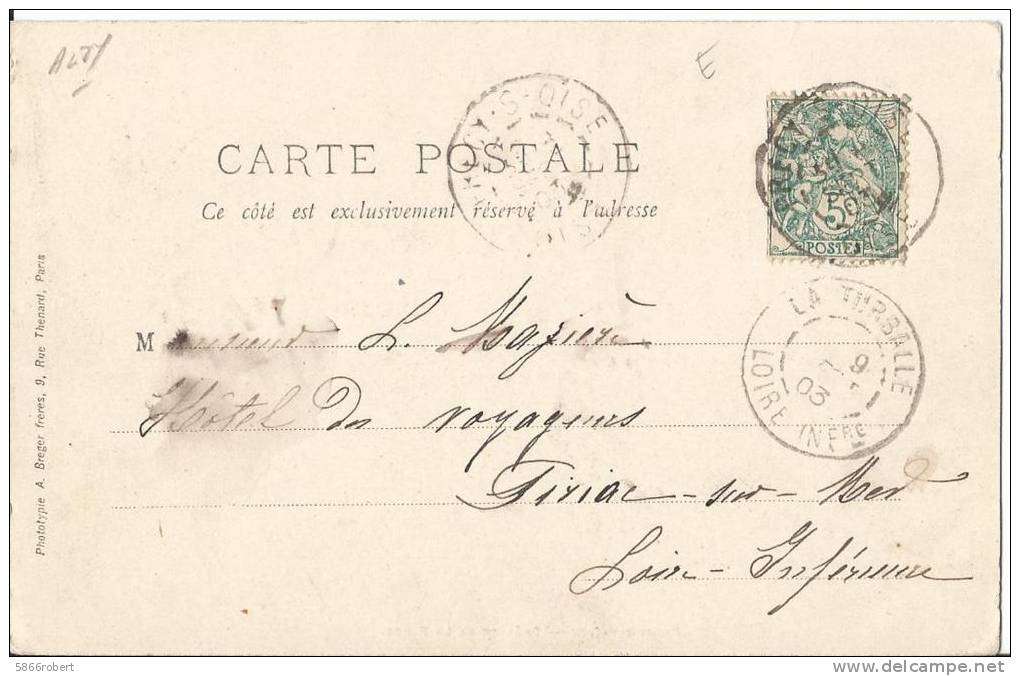 E
CARTE POSTALE
Ce côté est exclusivement réservé à l'adresse
S-OISE
5
POSTES
LA TURBALLE
9
03
LOIRE INFRE
Monsieur L. Mazière
Hôtel des voyageurs
Piriac-sur-Mer
Loire-Inférieure
Phototypie A. Breger frères, 9, Rue Thenard, Paris
5866robert
www.delcampe.net